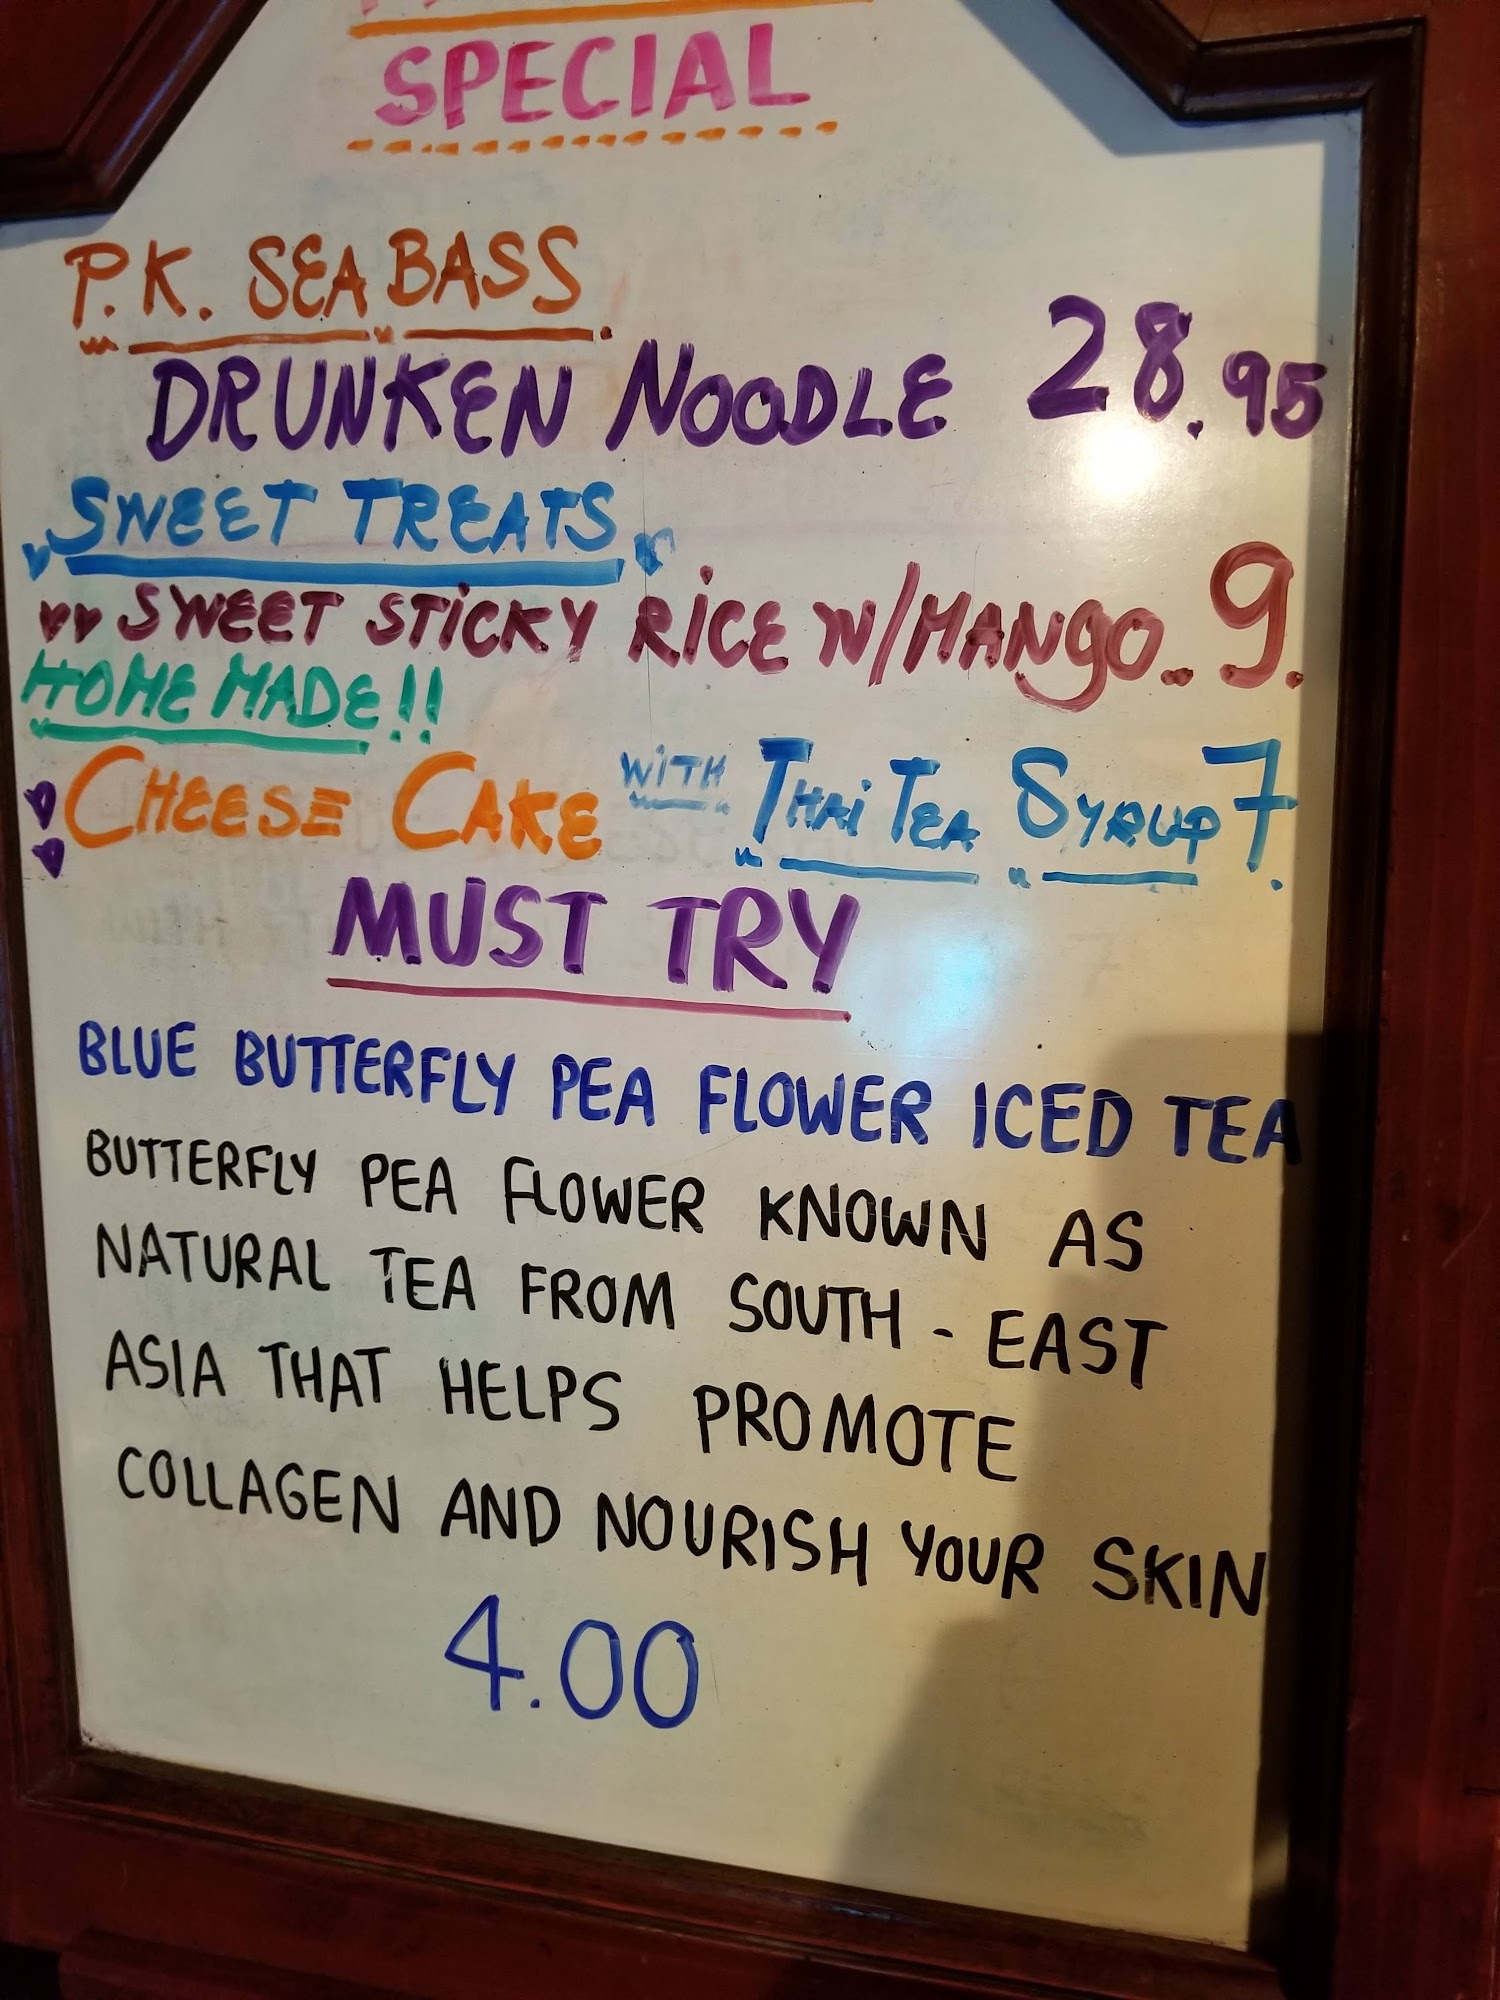 SPECIAL
P.K. SEA BASS
DRUNKEN NOODLE 28.95
SWEET TREATS
SWEET STICKY RICE W/MANGO.. 9.
HOME MADE!!
CHEESE CAKE WITH THAI TEA SYRUP 7.
MUST TRY
BLUE BUTTERFLY PEA FLOWER ICED TEA
BUTTERFLY PEA FLOWER KNOWN AS
NATURAL TEA FROM SOUTH - EAST
ASIA THAT HELPS PROMOTE
COLLAGEN AND NOURISH YOUR SKIN
4.00